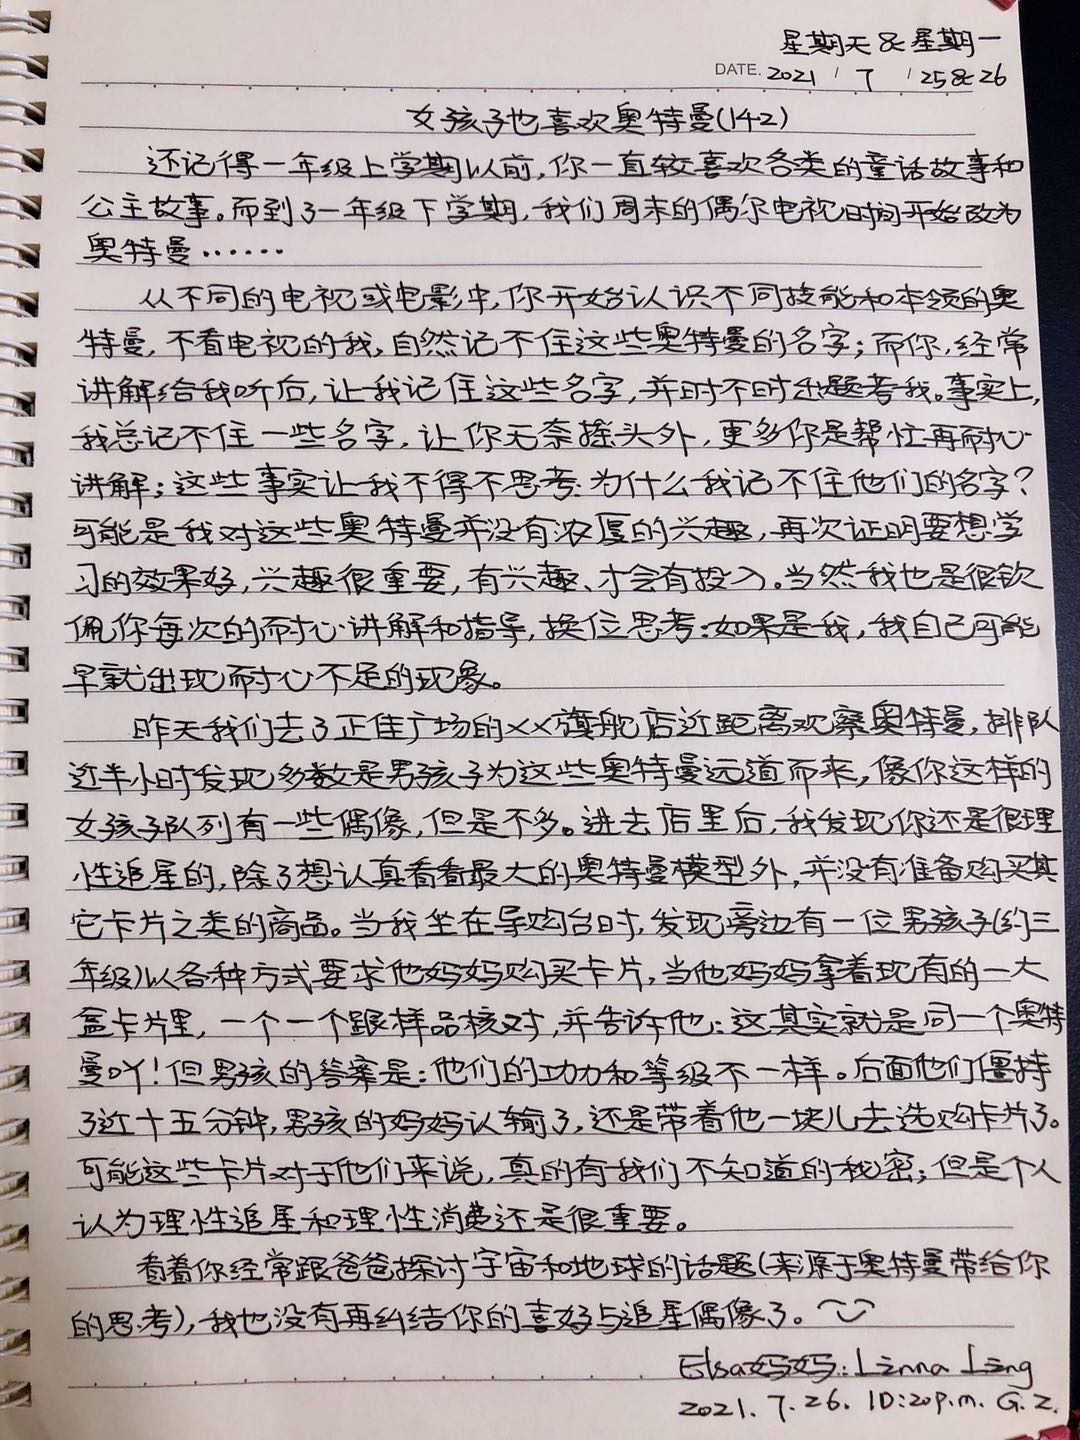 星期天&星期一
DATE. 2021 / 7 / 25&26
女孩子也喜欢奥特曼(142)
还记得一年级上学期以前,你一直较喜欢各类的童话故事和
公主故事。而到了一年级下学期,我们周末的偶尔电视时间开始改为
奥特曼……
从不同的电视或电影中,你开始认识不同技能和本领的奥
特曼,不看电视的我,自然记不住这些奥特曼的名字;而你,经常
讲解给我听后,让我记住这些名字,并时不时出题考我。事实上,
我总记不住一些名字,让你无奈摇头外,更多你是帮忙再耐心
讲解;这些事实让我不得不思考:为什么我记不住他们的名字?
可能是我对这些奥特曼并没有浓厚的兴趣,再次证明要想学
习的效果好,兴趣很重要,有兴趣、才会有投入。当然我也是很钦
佩你每次的耐心讲解和指导,换位思考:如果是我,我自己可能
早就出现耐心不足的现象。
昨天我们去了正佳广场的××旗舰店近距离观察奥特曼,排队
近半小时发现多数是男孩子为这些奥特曼远道而来,像你这样的
女孩子队列有一些偶像,但是不多。进去店里后,我发现你还是很理
性追星的,除了想认真看看最大的奥特曼模型外,并没有准备购买其
它卡片之类的商品。当我坐在导购台时,发现旁边有一位男孩子(约三
年级)以各种方式要求他妈妈购买卡片,当他妈妈拿着现有的一大
盒卡片里,一个一个跟样品核对,并告诉他:这其实就是同一个奥特
曼吖!但男孩的答案是:他们的功力和等级不一样。后面他们僵持
了近十五分钟,男孩的妈妈认输了,还是带着他一块儿去选购卡片了。
可能这些卡片对于他们来说,真的有我们不知道的秘密;但是个人
认为理性追星和理性消费还是很重要。
看着你经常跟爸爸探讨宇宙和地球的话题(来源于奥特曼带给你
的思考),我也没有再纠结你的喜好与追星偶像了。
Elsa妈妈:Linna Ling
2021. 7. 26. 10:20p.m. G.Z.